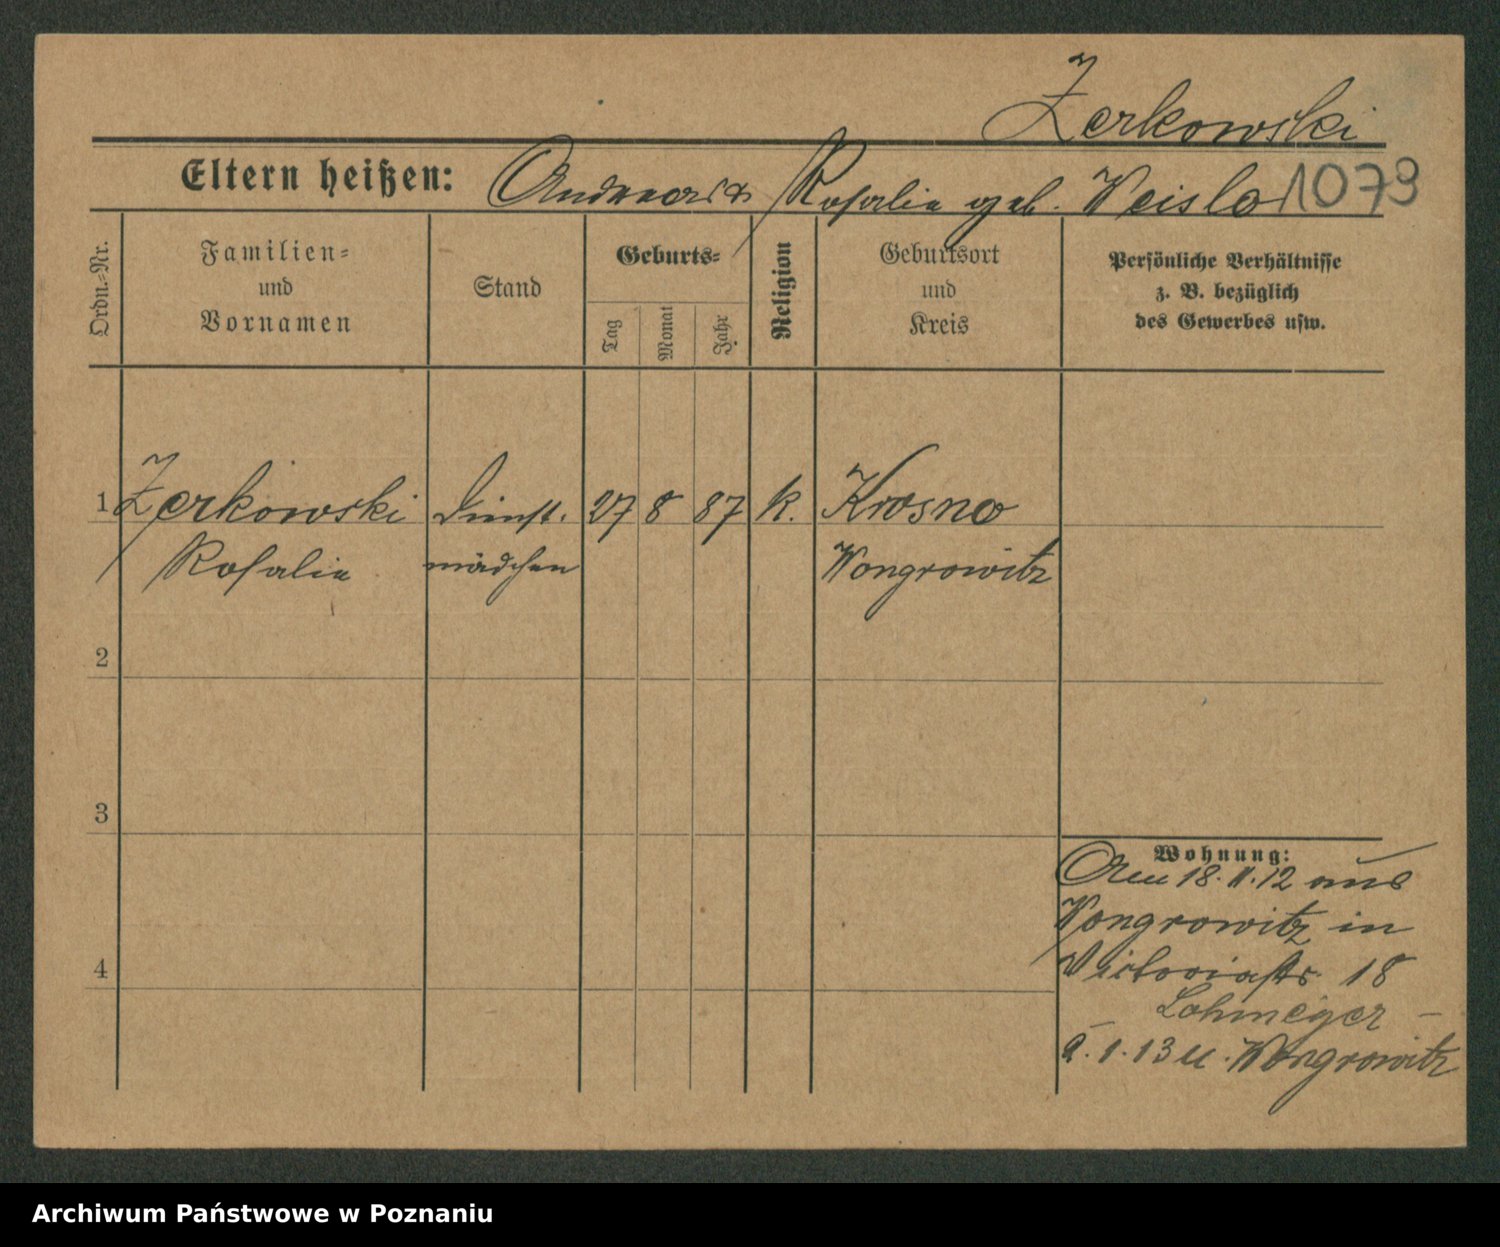 Zerkowski
Eltern heißen: Andreas & Rosalie geb. Weislo 1079
Ordn.-Nr.
Familien-
und
Vornamen
Stand
Geburts-
Tag
Monat
Jahr
Religion
Geburtsort
und
Kreis
Persönliche Verhältnisse
z. B. bezüglich
des Gewerbes usw.
1 Zerkowski Dienst. 27 8 87 k. Krosno
Rosalie mädchen Wongrowitz
2
3
4
Wohnung:
Am 18.11.12 aus
Wongrowitz in
Victoriastr. 18
Lohmeyer –
1.13 u. Wongrowitz
Archiwum Państwowe w Poznaniu